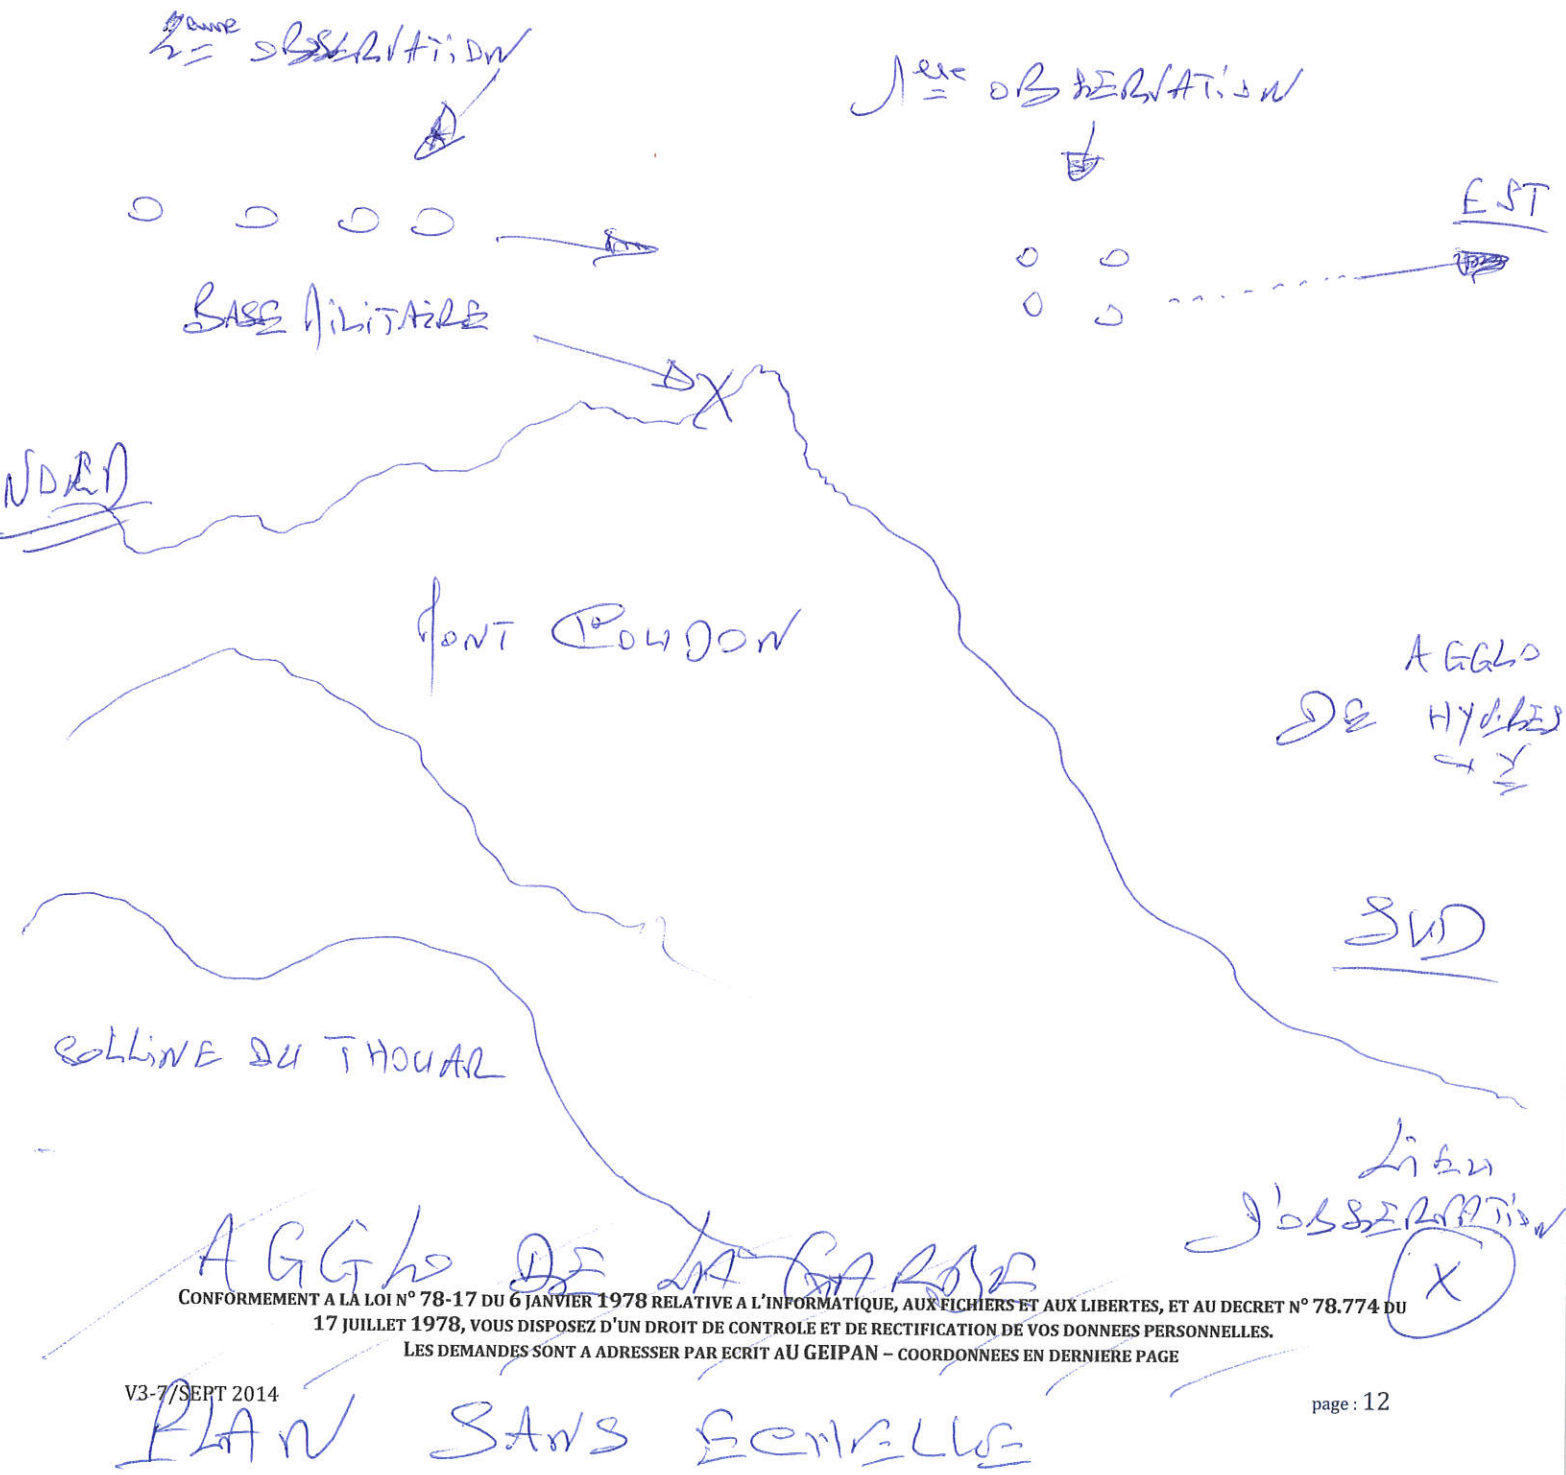 2ème OBSERVATION
1ère OBSERVATION
EST
BASE MILITAIRE
X
NORD
MONT COUDON
AGGLO
DE HYÈRES
SUD
COLLINE DU THOUAR
LIEU
D'OBSERVATION
X
AGGLO DE LA GARDE
CONFORMEMENT A LA LOI N° 78-17 DU 6 JANVIER 1978 RELATIVE A L'INFORMATIQUE, AUX FICHIERS ET AUX LIBERTES, ET AU DECRET N° 78.774 DU
17 JUILLET 1978, VOUS DISPOSEZ D'UN DROIT DE CONTROLE ET DE RECTIFICATION DE VOS DONNEES PERSONNELLES.
LES DEMANDES SONT A ADRESSER PAR ECRIT AU GEIPAN – COORDONNEES EN DERNIERE PAGE
V3-7/SEPT 2014
page : 12
PLAN SANS ECHELLE